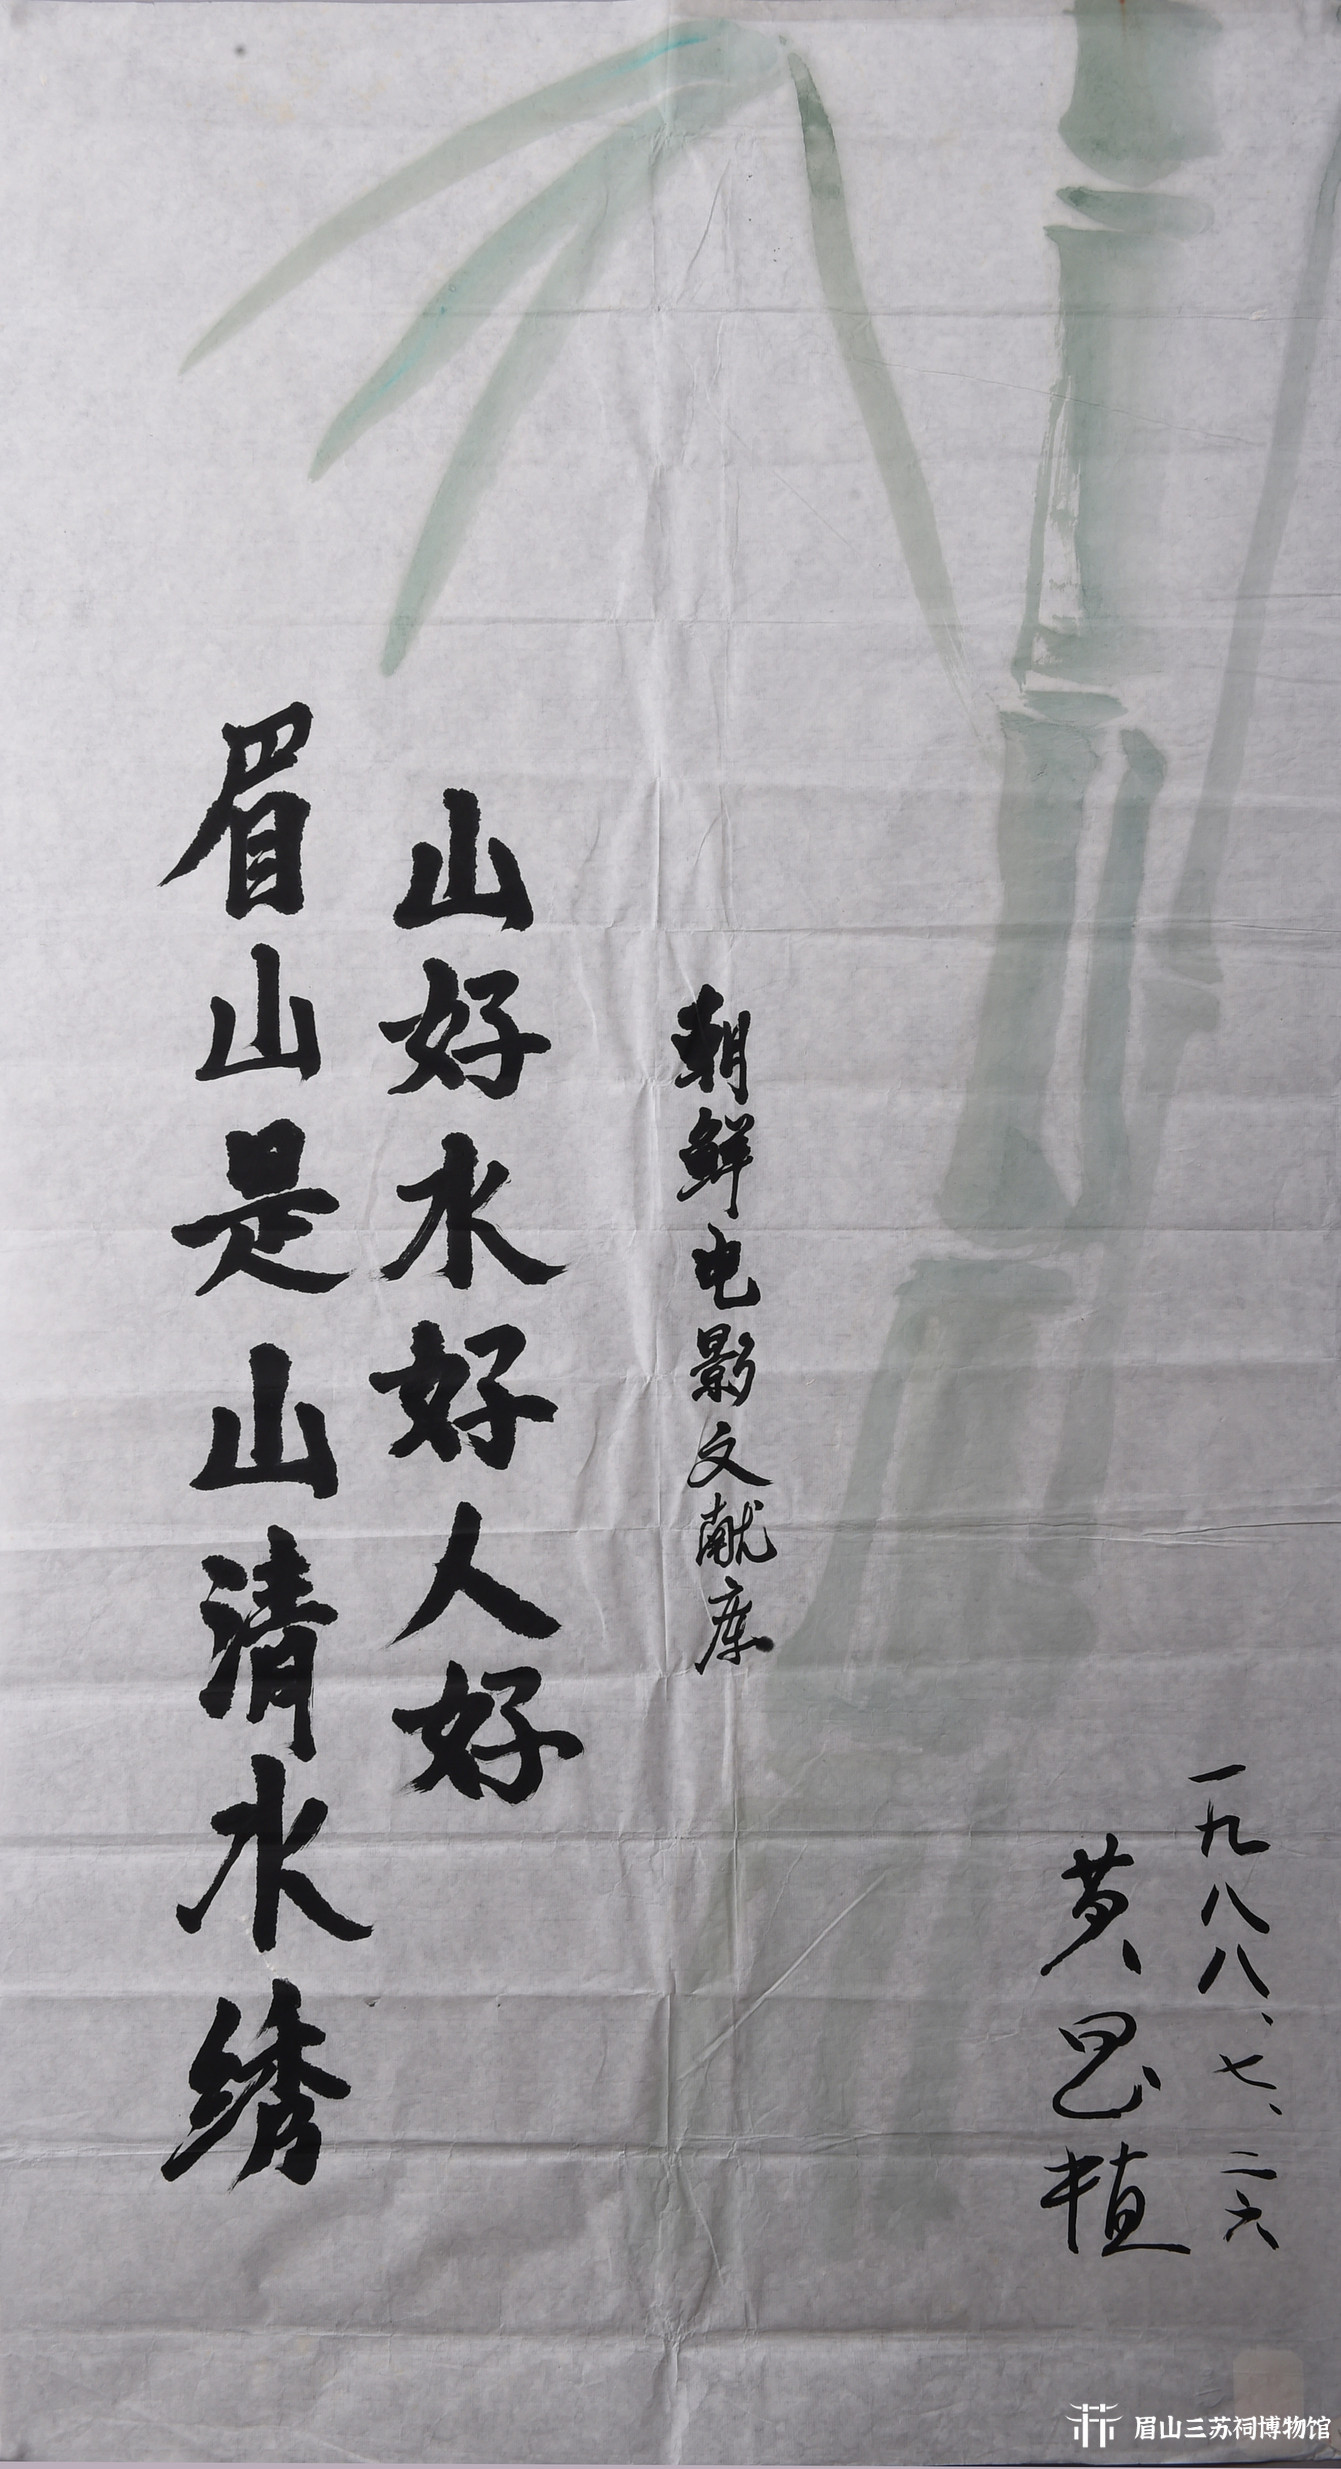 眉山是山清水绣
山好水好人好
朝鲜电影文献库
黄植
一九八八、七、二六
眉山三苏祠博物馆